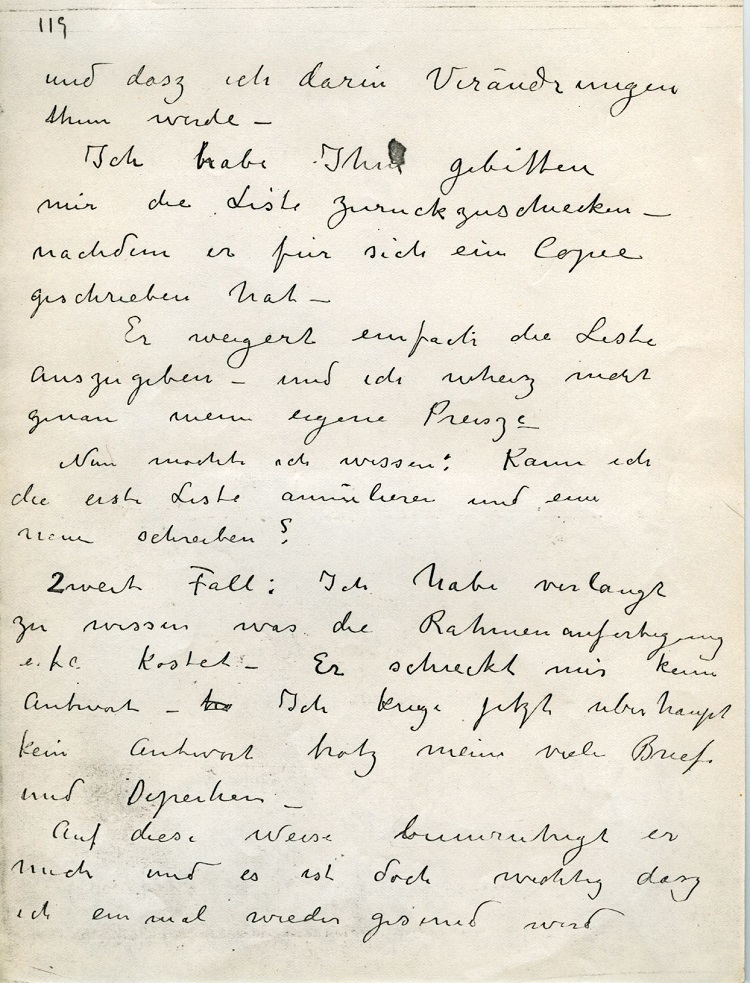 119
und dasz ich darin Verändrungen
thun werde –
Ich habe Ihm gebitten
mir die Liste zuruckzuschiecken –
nachdem er für sich ein Copie
geschrieben hat –
Er weigert einfach die Liste
auszugeben – und ich weisz nicht
genau meine eigene Preisze
Nun mochte ich wissen: Kann ich
die erste Liste annulieren und eine
neue schreiben?
Zweite Fall: Ich habe verlangt
zu wissen was die Rahmenanfertigung
e.t.c. kostet – Er schieckt mir keine
Antwort – Ich kriege jetzt uberhaupt
kein Antwort trotz meine viele Briefe
und Depechen –
Auf diese Weise beunruhigt er
mich und es ist doch wichtig dasz
ich einmal wieder gesund wird